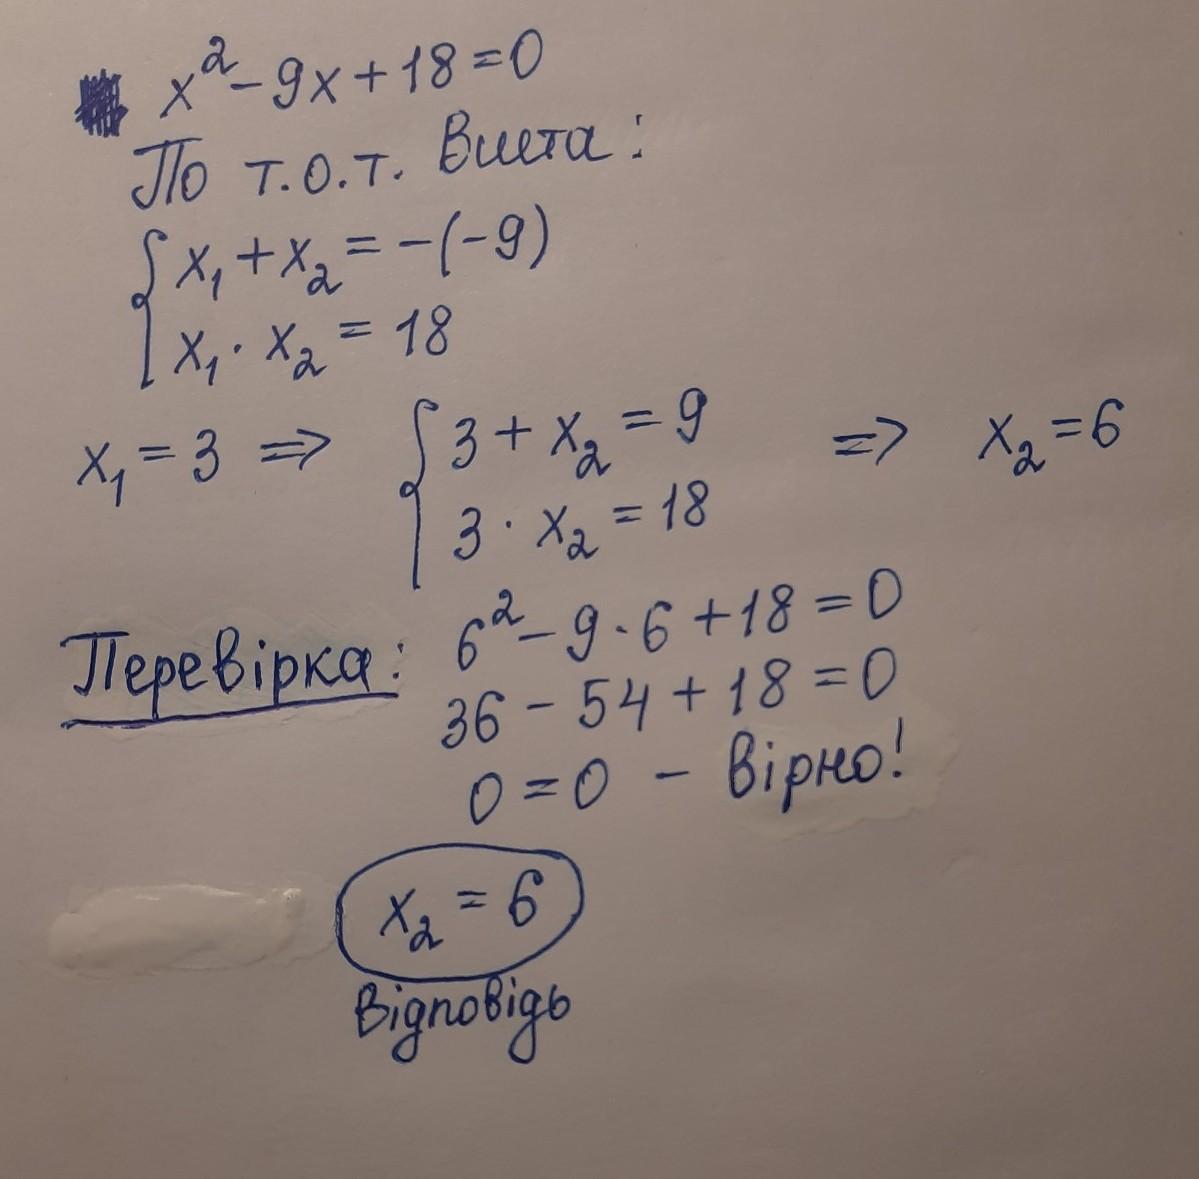 x² - 9x + 18 = 0
По т.о.т. Виета:
x₁ + x₂ = -(-9)
x₁ · x₂ = 18
x₁ = 3 => { 3 + x₂ = 9 => x₂ = 6
3 · x₂ = 18
Перевірка: 6² - 9 · 6 + 18 = 0
36 - 54 + 18 = 0
0 = 0 - Вірно!
x₂ = 6
Відповідь